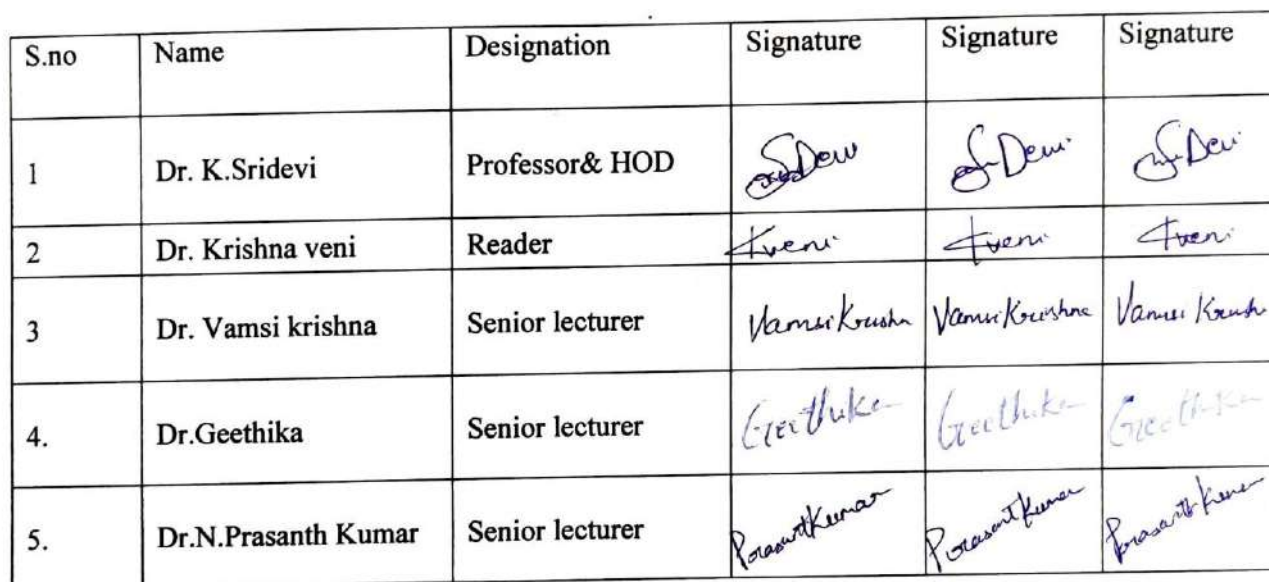 S.no Name Designation Signature Signature Signature
1 Dr. K.Sridevi Professor& HOD Devi Devi
2 Dr. Krishna veni Reader Kveni Kveni Kveni
3 Dr. Vamsi krishna Senior lecturer Vamsi Krishn Vamsi Krishna Vamsi Krish
4. Dr.Geethika Senior lecturer Geethika Geethika Geethika
5. Dr.N.Prasanth Kumar Senior lecturer Prasanth Kumar Prasanth Kumar Prasanth Kumar